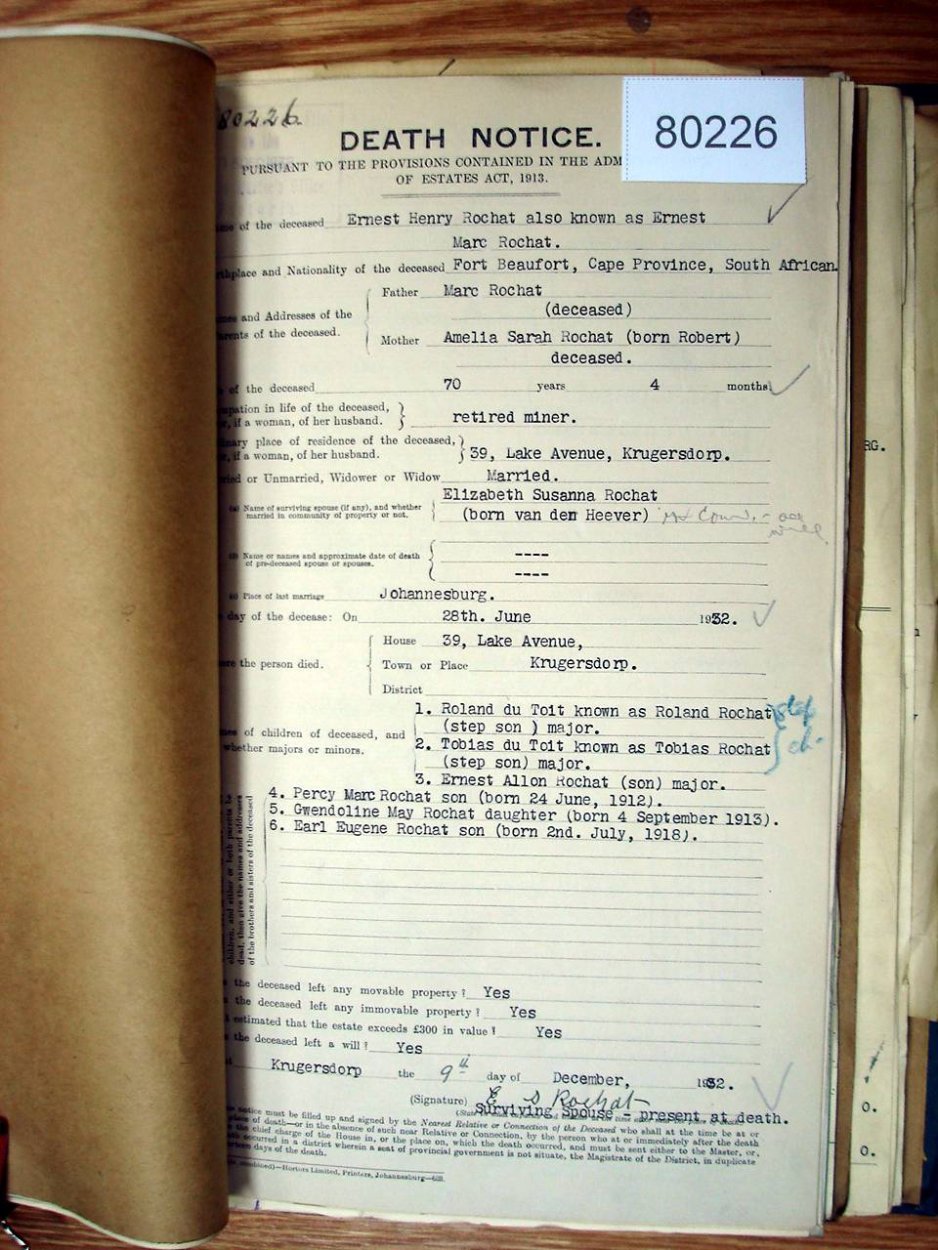 80226
80226
DEATH NOTICE.
PURSUANT TO THE PROVISIONS CONTAINED IN THE ADM
OF ESTATES ACT, 1913.
of the deceased Ernest Henry Rochat also known as Ernest
Marc Rochat.
thplace and Nationality of the deceased Fort Beaufort, Cape Province, South African.
Father Marc Rochat
(deceased)
es and Addresses of the
rents of the deceased.
Mother Amelia Sarah Rochat (born Robert)
deceased.
of the deceased 70 years 4 months
pation in life of the deceased,
, if a woman, of her husband. retired miner.
nary place of residence of the deceased,
, if a woman, of her husband. 39, Lake Avenue, Krugersdorp.
ried or Unmarried, Widower or Widow Married.
(a) Name of surviving spouse (if any), and whether
married in community of property or not.
Elizabeth Susanna Rochat
(born van den Heever)
(b) Name or names and approximate date of death
of pre-deceased spouse or spouses.
----
----
(c) Place of last marriage Johannesburg.
day of the decease: On 28th. June 1932.
House 39, Lake Avenue,
re the person died. Town or Place Krugersdorp.
District
1. Roland du Toit known as Roland Rochat
(step son ) major.
es of children of deceased, and
whether majors or minors.
2. Tobias du Toit known as Tobias Rochat
(step son) major.
3. Ernest Allon Rochat (son) major.
4. Percy Marc Rochat son (born 24 June, 1912).
5. Gwendoline May Rochat daughter (born 4 September 1913).
6. Earl Eugene Rochat son (born 2nd. July, 1918).
children, and either or both parents
dead, then give the names and addresses
of the brothers and sisters of the deceased
the deceased left any movable property? Yes
the deceased left any immovable property? Yes
estimated that the estate exceeds £300 in value? Yes
the deceased left a will? Yes
Krugersdorp the 9th day of December, 1932.
(Signature) E S Rochat
Surviving Spouse - present at death.
notice must be filled up and signed by the Nearest Relative or Connection of the Deceased who shall at the time be at or
place of death—or in the absence of such near Relative or Connection, by the person who at or immediately after the death
the chief charge of the House in, or the place on, which the death occurred, and must be sent either to the Master, or,
occurred in a district wherein a seat of provincial government is not situate, the Magistrate of the District, in duplicate
days of the death.
Hortors Limited, Printers, Johannesburg
RG.
0.
0.